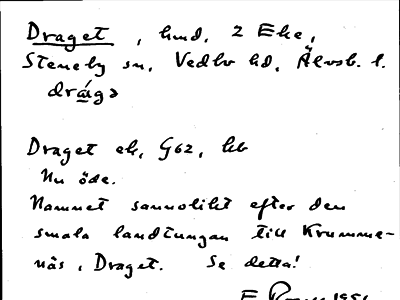 Draget, hmd, 2 Eke,
Steneby sn, Vedbo hd, Älvsb. l.
drágə
Draget ek, G62, hb
Nu öde.
Namnet sannolikt efter den
smala landtungan till Krumme-
näs, Draget. Se detta!
E 1951